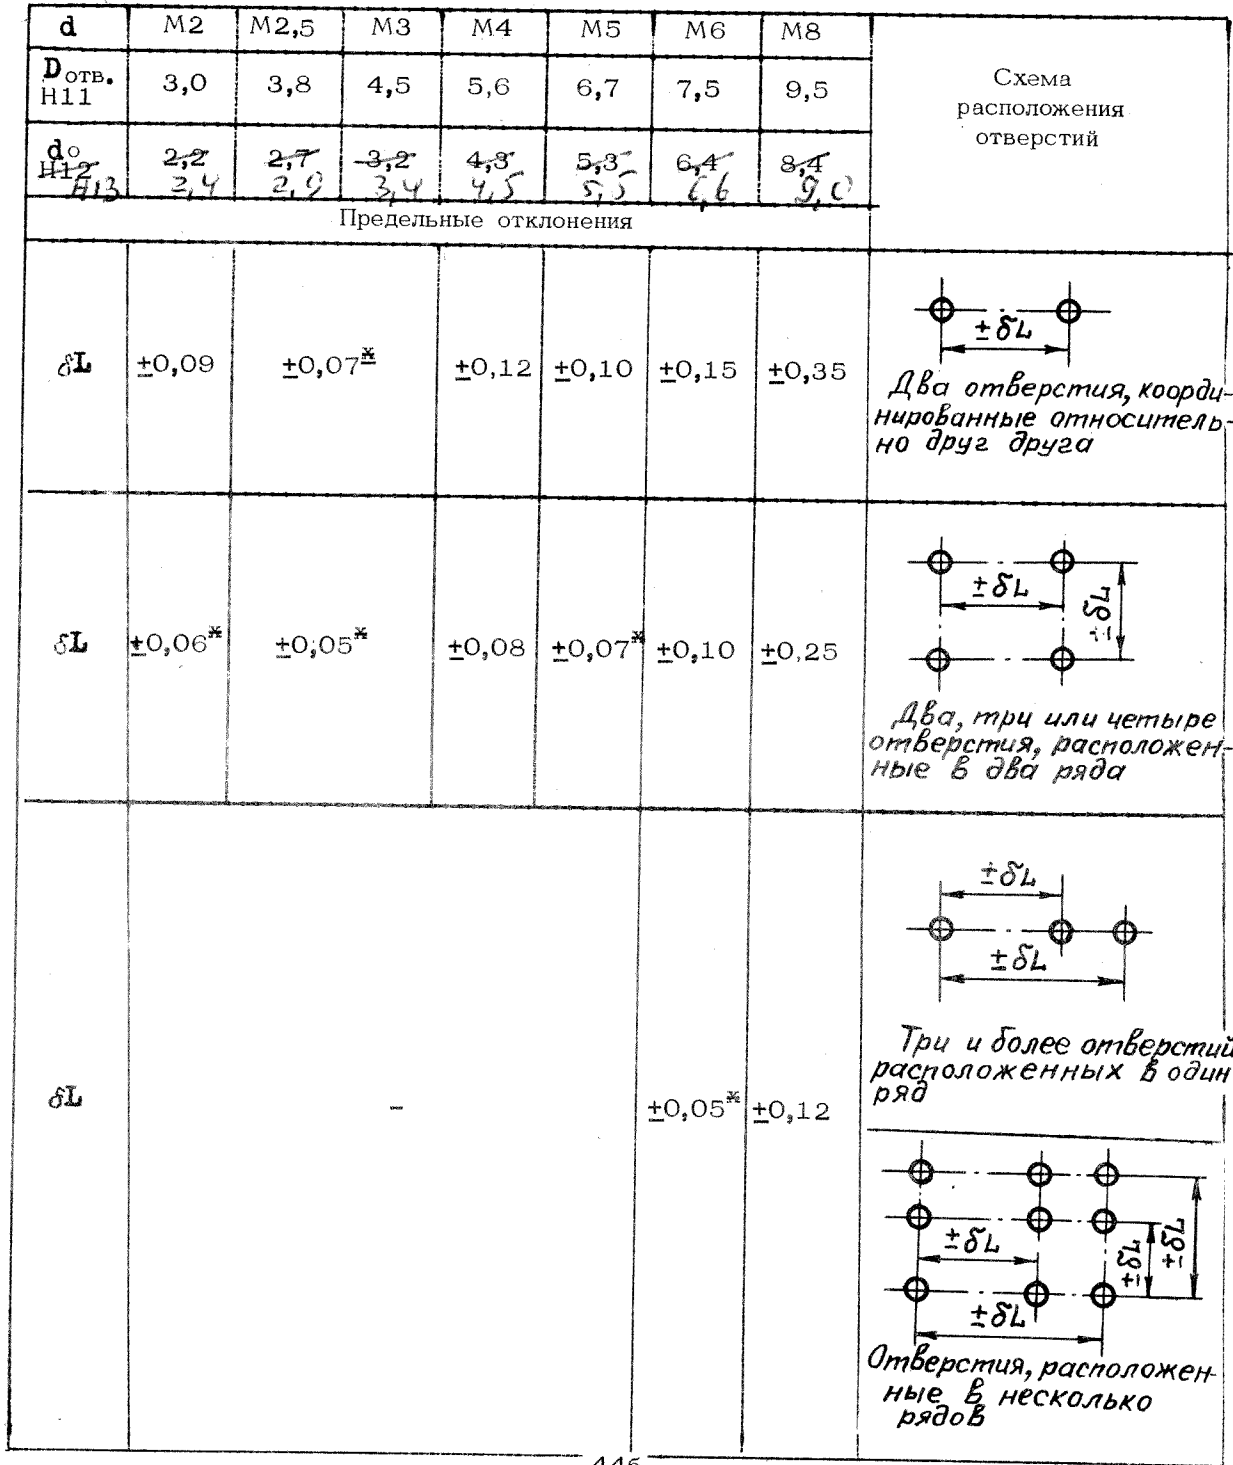 d M2 M2,5 M3 M4 M5 M6 M8
Dотв. H11 3,0 3,8 4,5 5,6 6,7 7,5 9,5
Схема
расположения
отверстий
d₀ H12 2,2 2,7 3,2 4,3 5,3 6,4 8,4
H13 2,4 2,9 3,4 4,5 5,5 6,6 9,0
Предельные отклонения
δL ±0,09 ±0,07* ±0,12 ±0,10 ±0,15 ±0,35
±δL
Два отверстия, коорди-
нированные относитель-
но друг друга
δL ±0,06* ±0,05* ±0,08 ±0,07* ±0,10 ±0,25
±δL ±δL
Два, три или четыре
отверстия, расположен-
ные в два ряда
δL – ±0,05* ±0,12
±δL
±δL
Три и более отверстий
расположенных в один
ряд
±δL ±δL ±δL
±δL
Отверстия, расположен-
ные в несколько
рядов